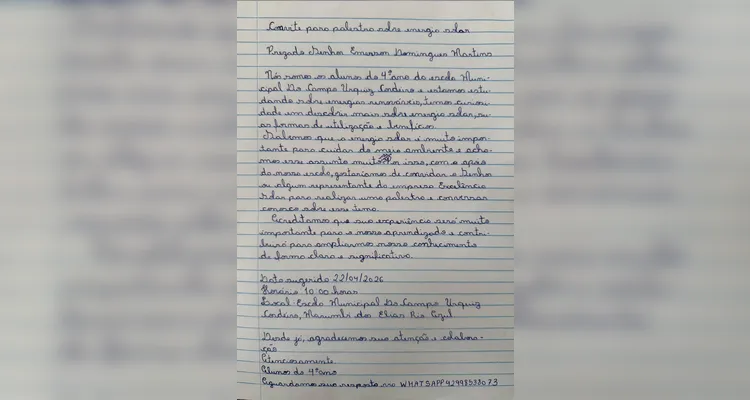 Convite para palestra sobre energia solar
Prezado Senhor Emerson Domingues Martins
Nós somos os alunos do 4º ano da escola Muni-
cipal Do Campo Urquiz Cordeiro e estamos estu-
dando sobre energias renováveis, temos curiosi-
dade em descobrir mais sobre energia solar, su-
as formas de utilização e benefícios
Sabemos que a energia solar é muito impor-
tante para cuidar do meio ambiente e acha-
mos esse assunto muito Por isso, com o apoio
da nossa escola, gostaríamos de convidar o Senhor
ou algum representante da empresa Excelência
solar para realizar uma palestra e conversar
conosco sobre esse tema.
Acreditamos que sua experiência será muito
importante para o nosso aprendizado e contri-
buirá para ampliarmos nosso conhecimento
de forma clara e significativa.
Data sugerida 22/04/2026
Horário 10:00 horas
Local Escola Municipal Do Campo Urquiz
Cordeiro, Marumbi dos Elias Rio Azul
Desde já, agradecemos sua atenção e colabora-
ção
Atenciosamente
Alunos do 4º ano
Aguardamos sua resposta no WHATSAPP